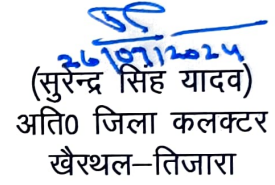 26/07/2024
(सुरेन्द्र सिंह यादव)
अति0 जिला कलक्टर
खैरथल–तिजारा